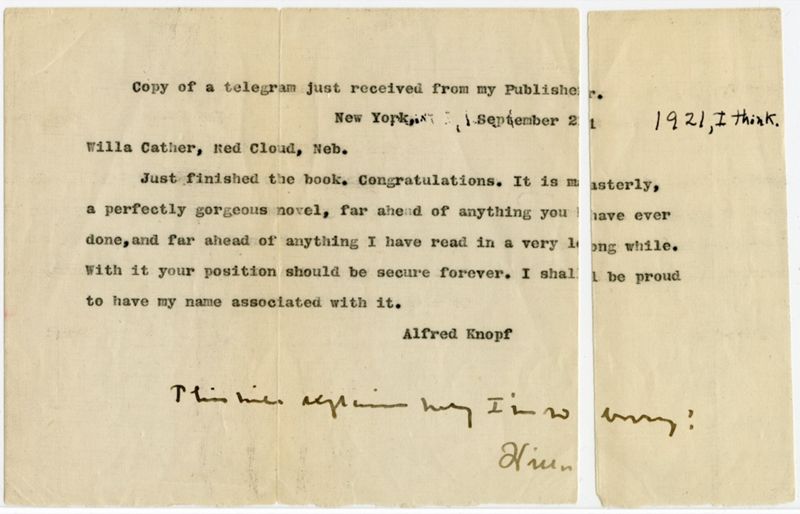 Copy of a telegram just received from my Publisher.
New York, September 21 1921, I think.
Willa Cather, Red Cloud, Neb.
Just finished the book. Congratulations. It is masterly,
a perfectly gorgeous novel, far ahead of anything you have ever
done, and far ahead of anything I have read in a very long while.
With it your position should be secure forever. I shall be proud
to have my name associated with it.
Alfred Knopf
This will explain why I'm so